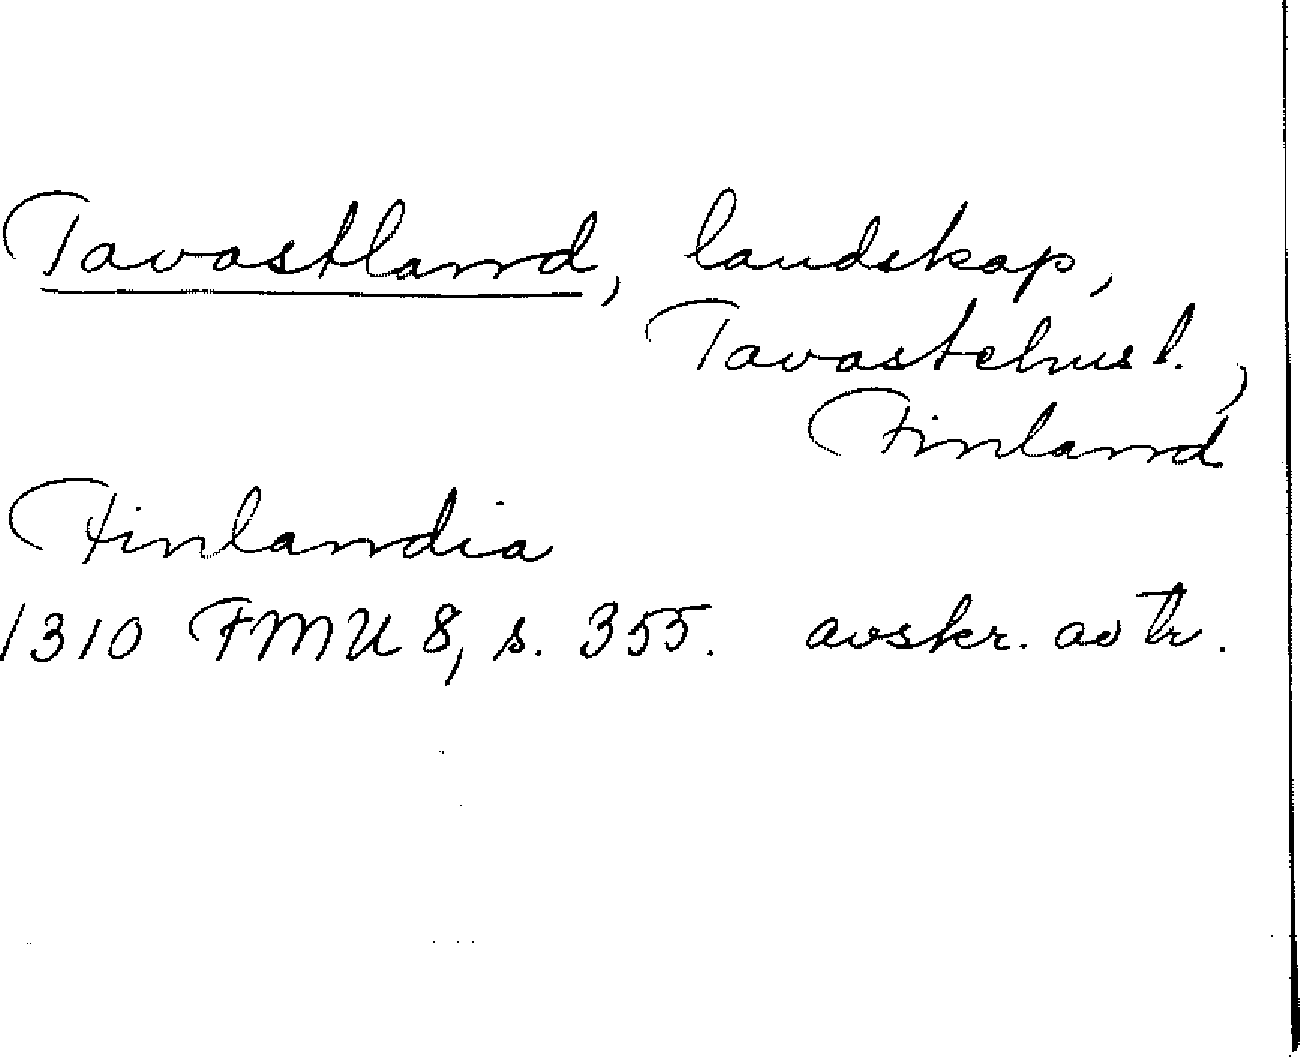 Tavastland, landskap,
Tavastehus l.,
Finland
Finlandia
1310 FMU 8, s. 355. avskr. av tr.